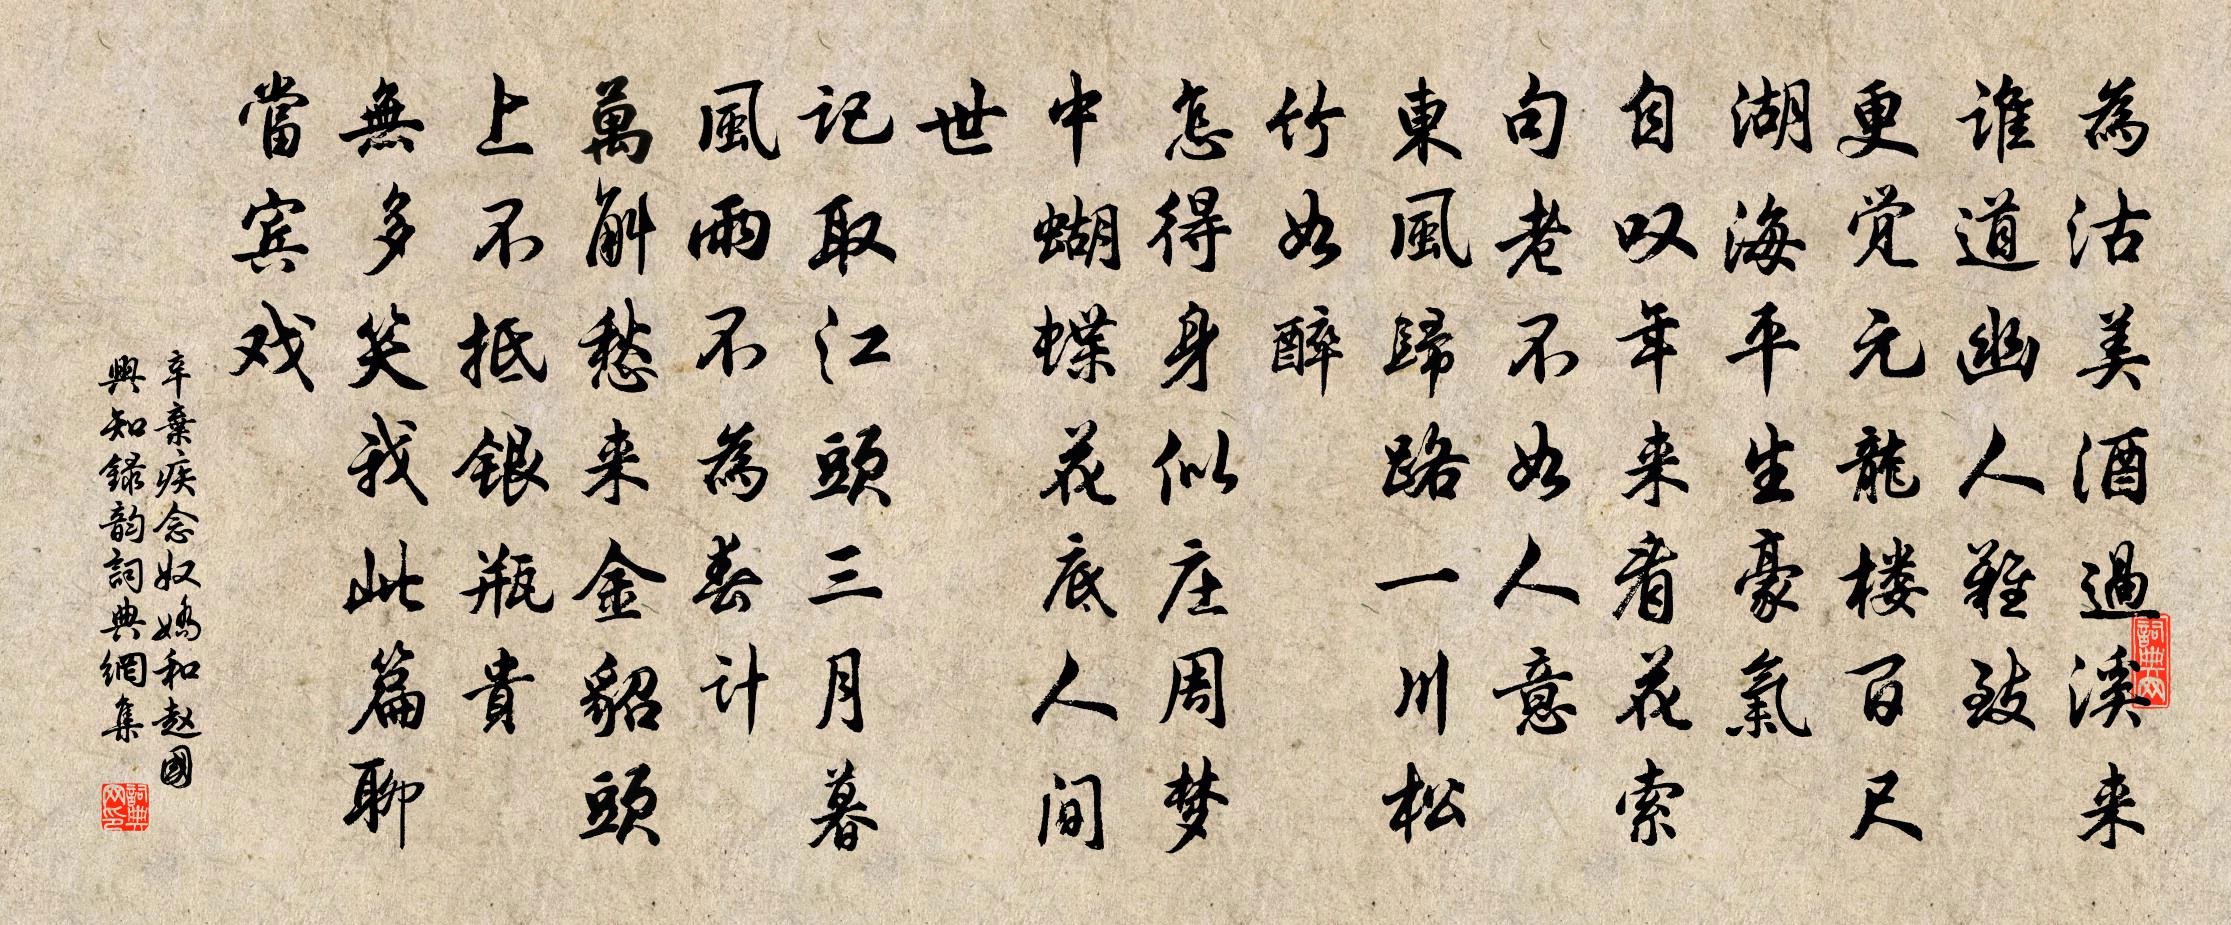 為沽美酒過溪来
谁道幽人難致
更觉元龍楼百尺
湖海平生豪氣
自叹年来看花索
句老不如人意
東風歸路一川松
竹如醉
怎得身似庄周梦
中蝴蝶花底人间
世
记取江頭三月暮
風雨不為春计
萬斛愁来金貂頭
上不抵银瓶貴
無多笑我此篇聊
當宾戏
辛棄疾念奴嬌和赵國
興知録韵詞典網集
詞典网
詞典网印